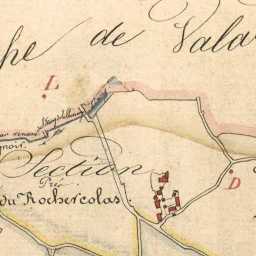 pe de Vala
L
Section
Pré
du Rochercolas
D